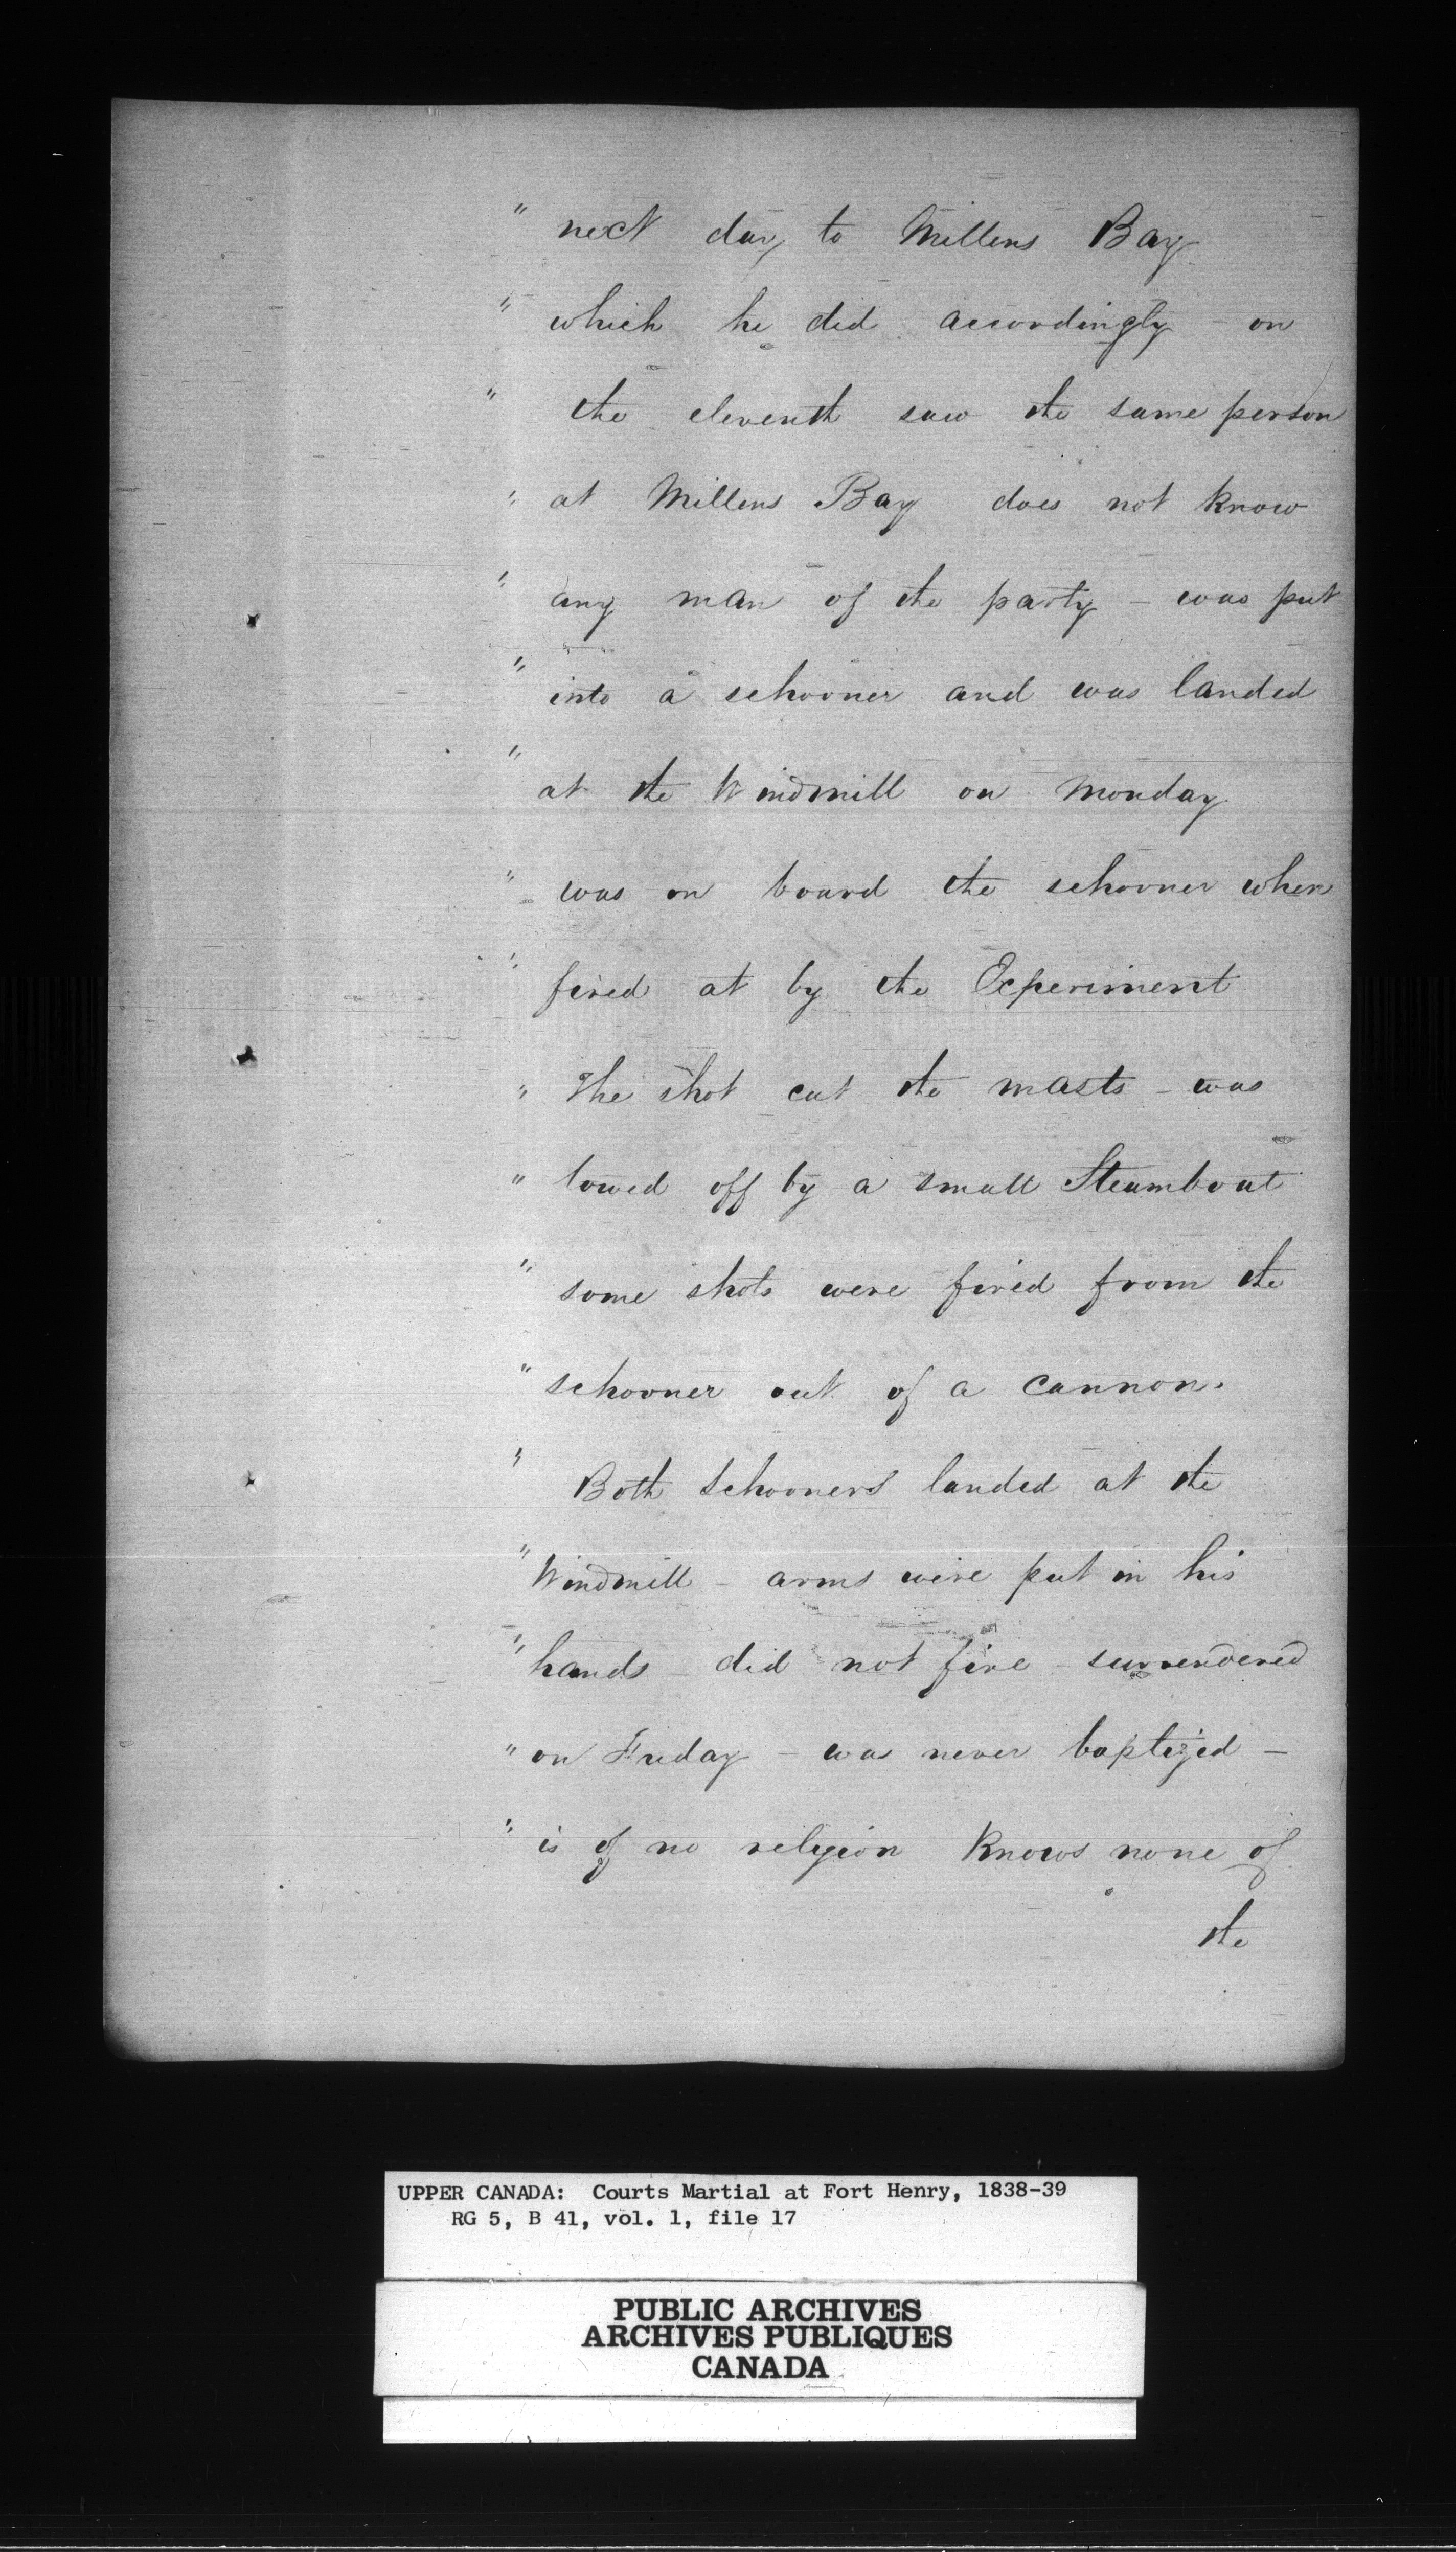 " next day to Millens Bay
" which he did accordingly - on
" the eleventh saw the same person
" at Millens Bay does not know
" any man of the party - was put
" into a schooner and was landed
" at the Windmill on Monday
" was on board the schooner when
" fired at by the Experiment
" The shot cut the masts - was
" towed off by a small Steamboat
" some shots were fired from the
" schooner out of a cannon.
" Both Schooners landed at the
" Windmill - arms were put in his
" hands - did not fire - surrendered
" on Friday - was never baptized -
" is of no religion Knows none of
the
UPPER CANADA: Courts Martial at Fort Henry, 1838-39
RG 5, B 41, vol. 1, file 17
PUBLIC ARCHIVES
ARCHIVES PUBLIQUES
CANADA